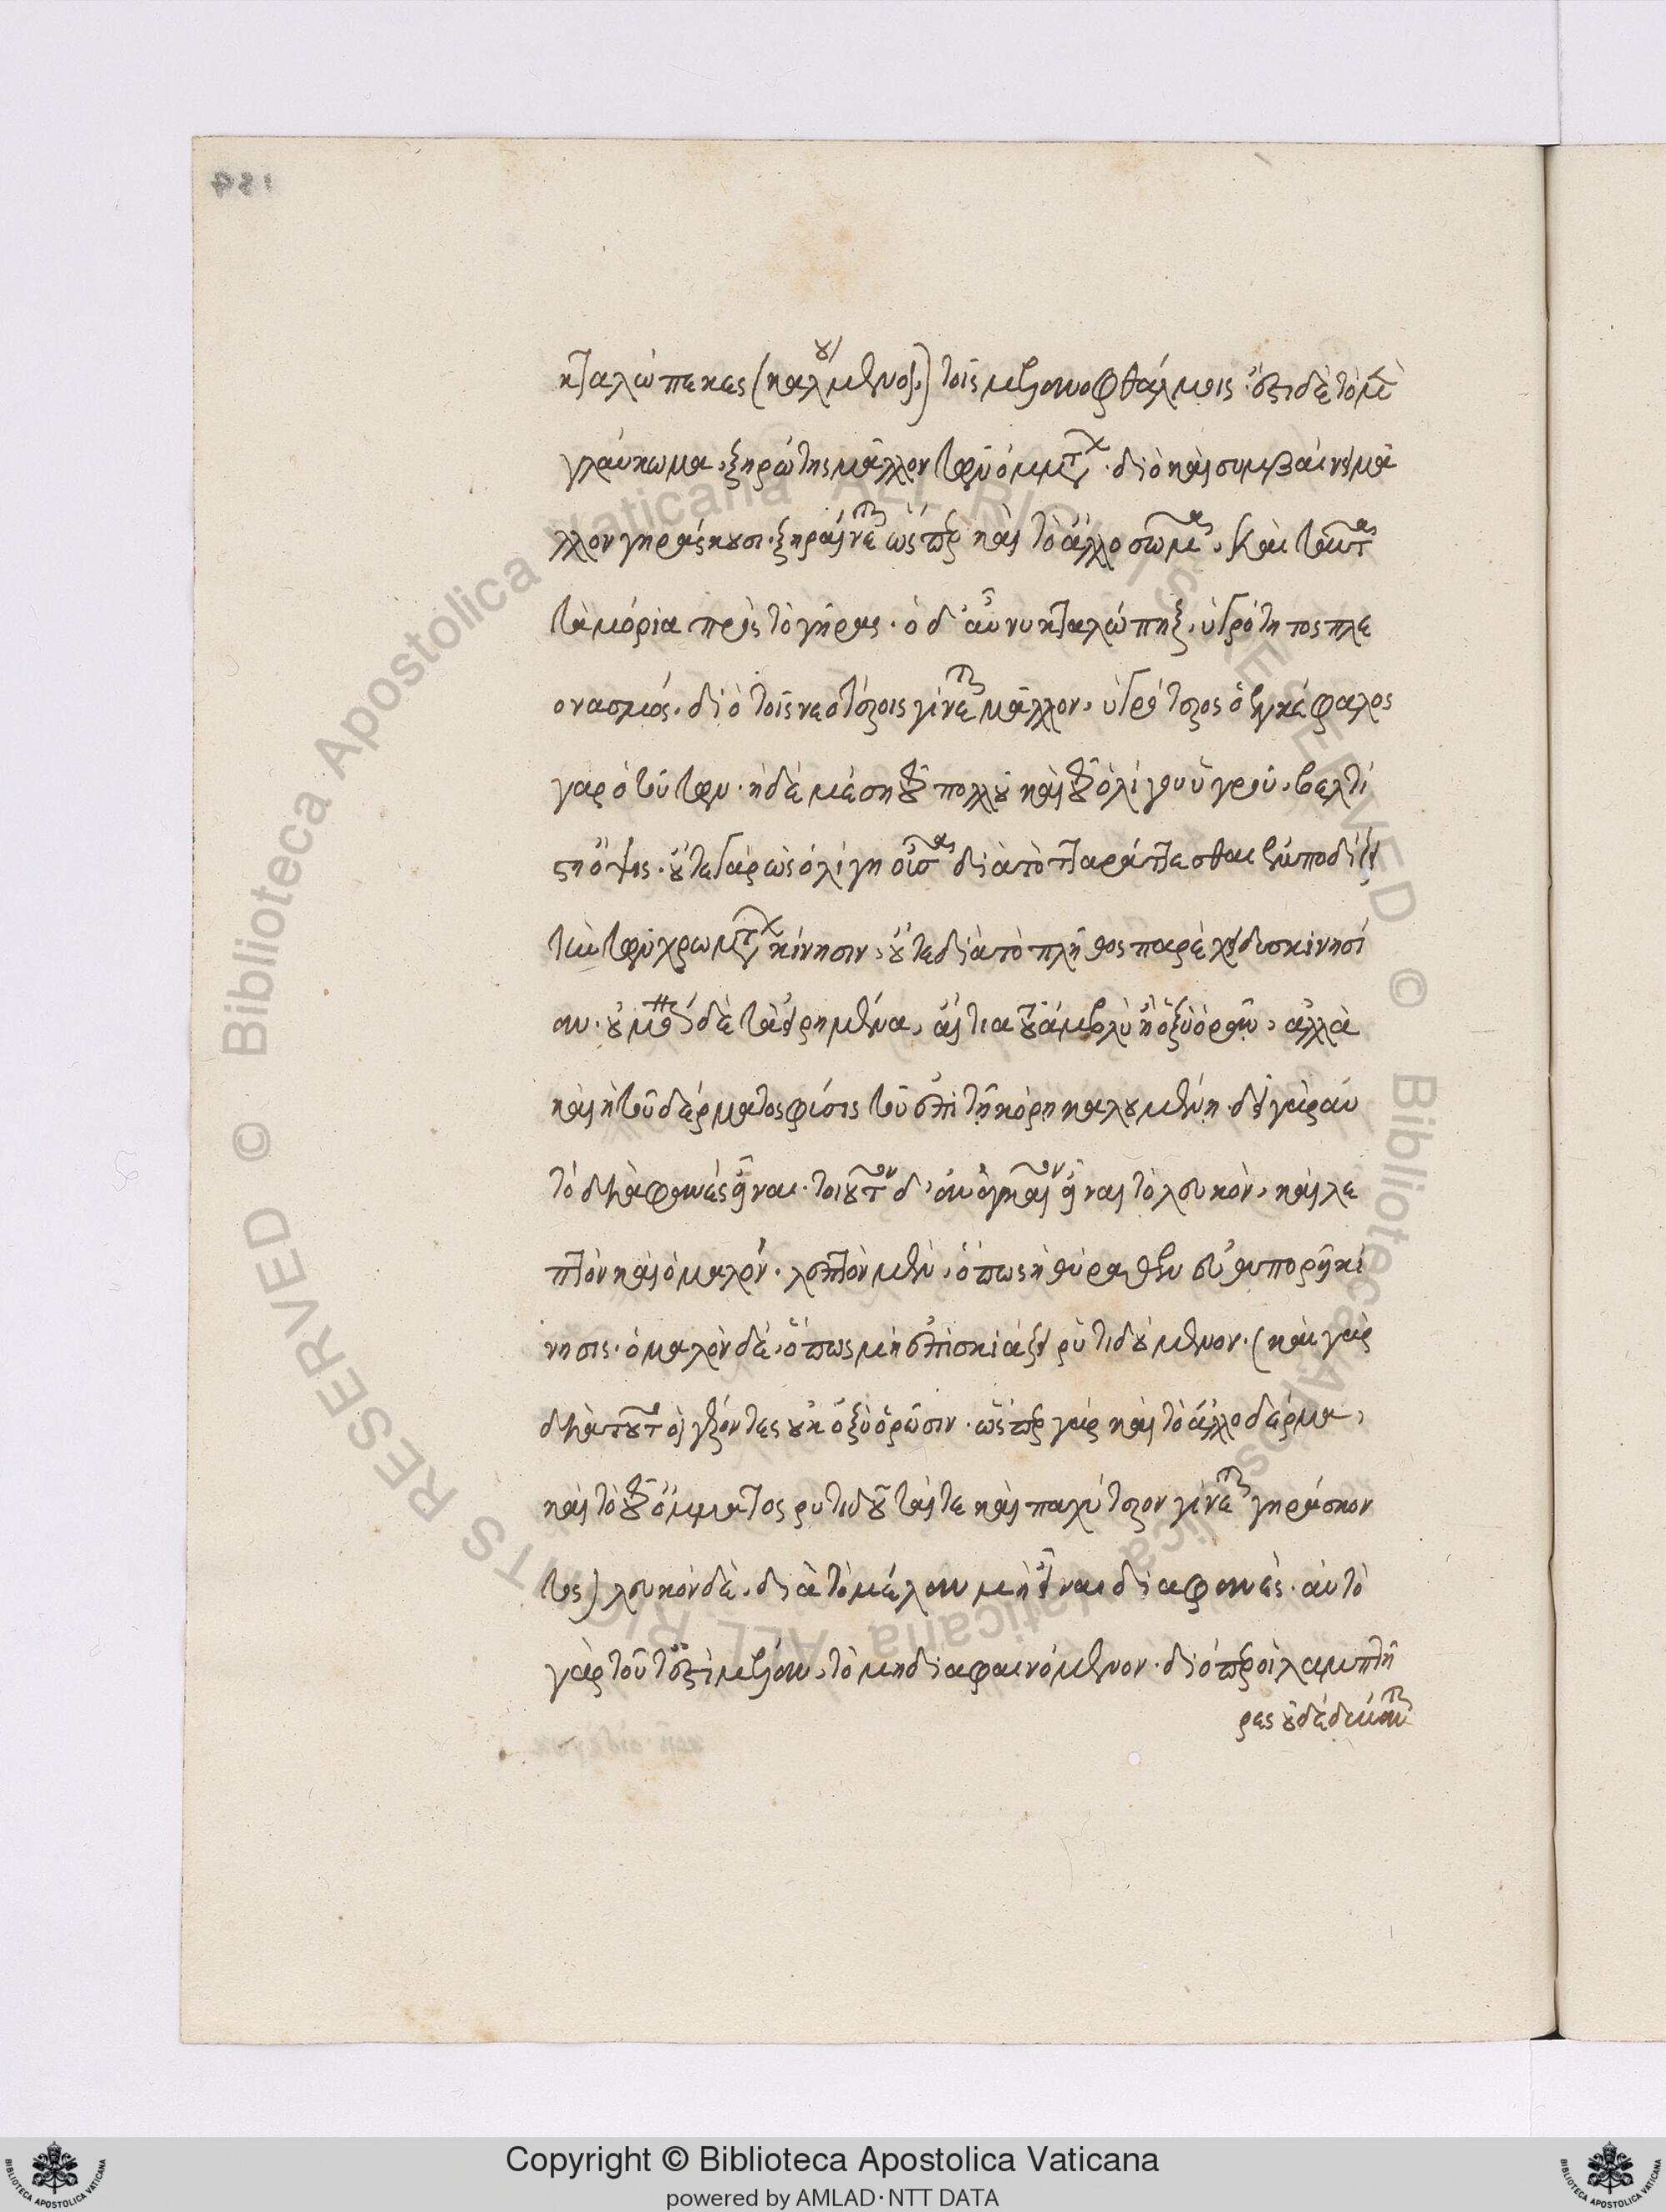 κταλώπεκες (καλούμενοι) τοῖς μελανοφθάλμοις. ἔστι δὲ τὸ μὲν
γλαύκωμα, ξηρότης μᾶλλον τῶν ὀμμάτων. διὸ καὶ συμβαίνει μᾶ
λλον γηράσκουσι. ξηραίνεται ὥσπερ καὶ τὸ ἄλλο σῶμα, καὶ ταῦτα
τὰ μόρια πρὸς τὸ γῆρας. ὁ δ' αὖ νυκταλώπηξ, ὑγρότητος πλε
ονασμός. διὸ τοῖς νεοτέροις γίνεται μᾶλλον, ὑγρότερος ὁ ἐγκέφαλος
γὰρ ὁ τούτων. ἡ δὲ μέση τοῦ πολλοῦ καὶ τοῦ ὀλίγου ὑγροῦ, βελτί
στη ὄψις. οὔτε γὰρ ὡς ὀλίγη οὖσα διὰ τὸ ταράττεσθαι ἐμποδίζει
τὴν τῶν χρωμάτων κίνησιν, οὔτε διὰ τὸ πλῆθος παρέχει δυσκινησί
αν. οὐ μόνον δὲ τὰ εἰρημένα, αἴτια τοῦ ἀμβλὺ ἢ ὀξὺ ὁρᾶν, ἀλλὰ
καὶ ἡ τοῦ δέρματος φύσις τοῦ ἐπὶ τῇ κόρῃ καλουμένῃ. δεῖ γὰρ αὐ
τὸ διαφανὲς εἶναι. τοιοῦτον δ' ἀναγκαῖον εἶναι τὸ λευκὸν, καὶ λε
πτὸν καὶ ὁμαλόν. λεπτὸν μὲν, ὅπως ἡ θύραθεν εὐθυπορῇ κί
νησις. ὁμαλὸν δὲ, ὅπως μὴ ἐπισκιάζῃ ῥυτιδούμενον. (καὶ γὰρ
διὰ τοῦτο οἱ γέροντες οὐκ ὀξὺ ὁρῶσιν. ὥσπερ γὰρ καὶ τὸ ἄλλο δέρμα,
καὶ τὸ τοῦ ὄμματος ῥυτιδοῦταί τε καὶ παχύτερον γίνεται γηράσκον
τος) λευκὸν δὲ, διὰ τὸ μέλαν μὴ εἶναι διαφανές. αὐτὸ
γὰρ τοῦτό ἐστι μέλαν, τὸ μὴ διαφαινόμενον. διόπερ οἱ λαμπτῆ
ρες οὐδὲ δύνανται